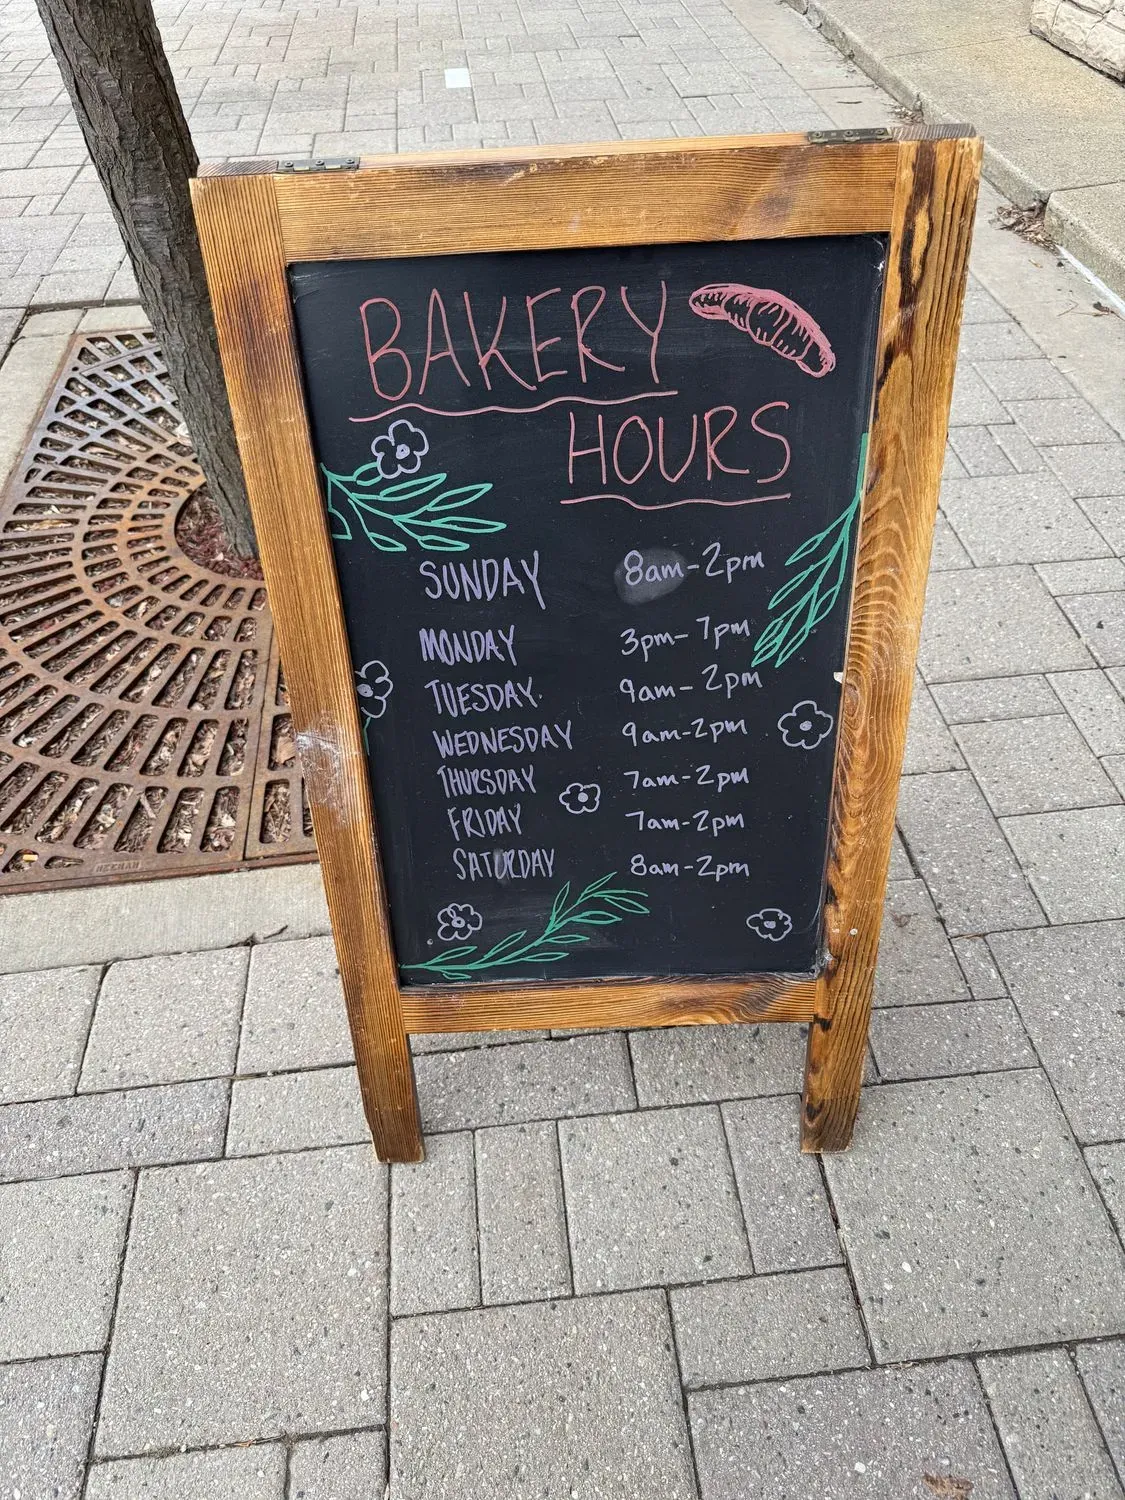 BAKERY
HOURS
SUNDAY 8am-2pm
MONDAY 3pm-7pm
TUESDAY. 9am-2pm
WEDNESDAY 9am-2pm
THURSDAY 7am-2pm
FRIDAY 7am-2pm
SATURDAY 8am-2pm
NEENAH